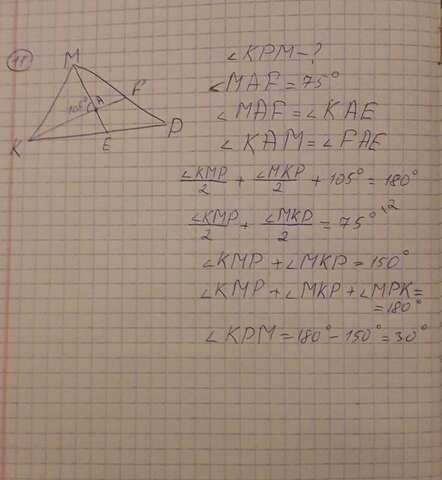 11
M
F
105°
A
K
E
P
∠KPM-?
∠MAF=75°
∠MAF=∠KAE
∠KAM=∠FAE
∠KMP/2 + ∠MKP/2 + 105°=180°
∠KMP/2 + ∠MKP/2 = 75° \·2
∠KMP+∠MKP=150°
∠KMP+∠MKP+∠MPK=
=180°
∠KPM=180°-150°=30°